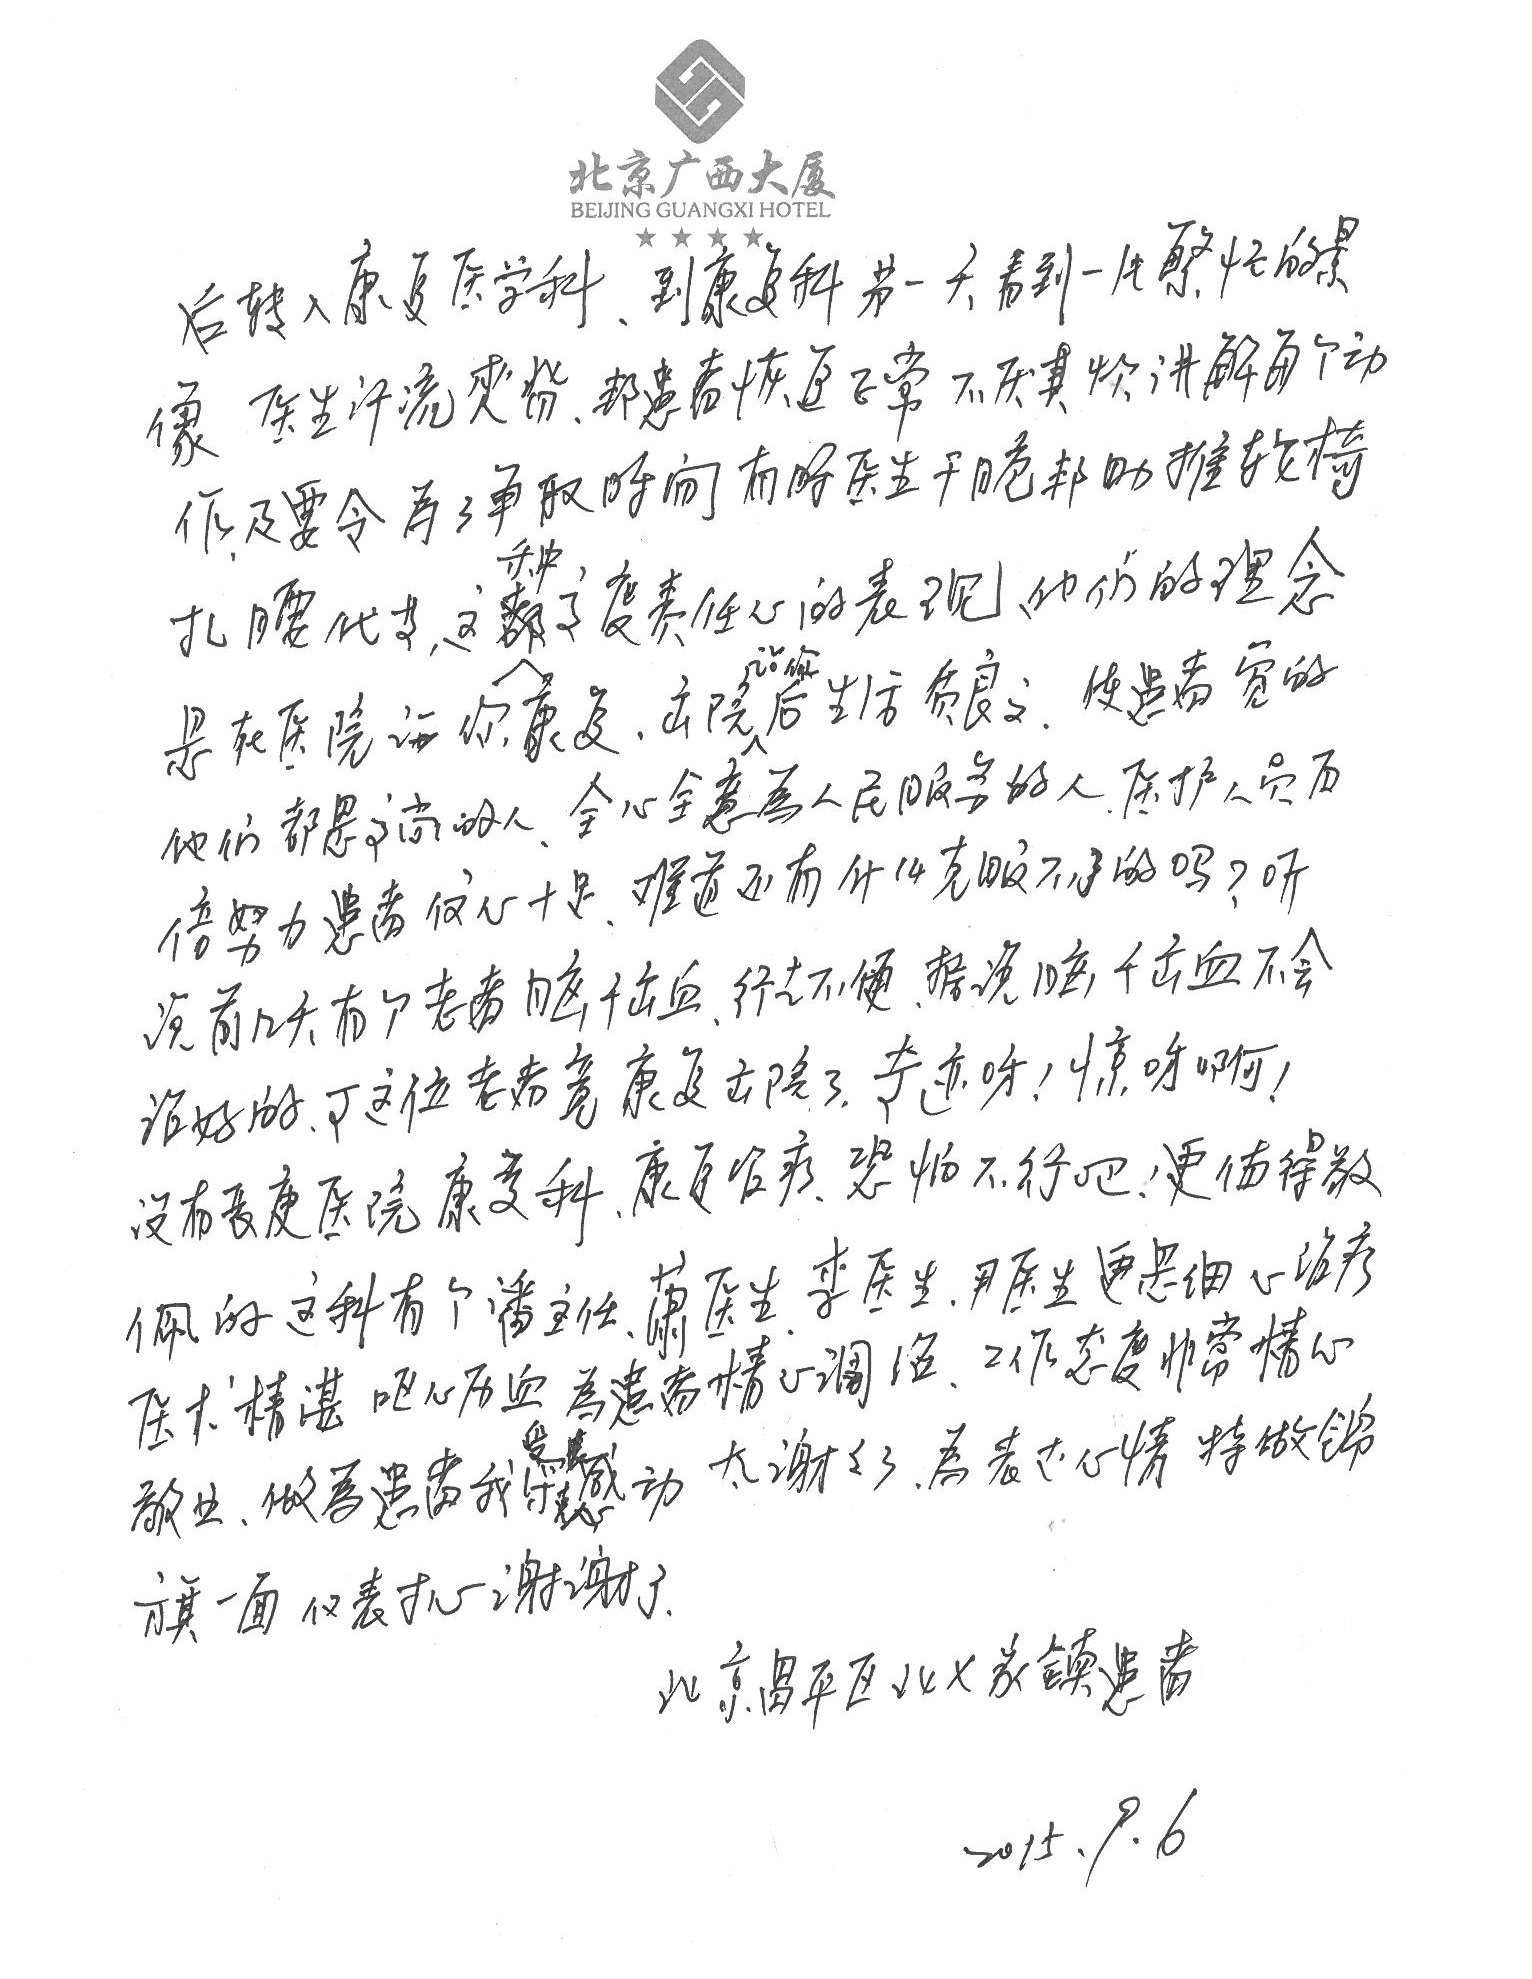 北京广西大厦
BEIJING GUANGXI HOTEL
后转入康复医学科、到康复科第一天看到一片繁忙的景
像 医生汗流夹背、帮患者恢复正常 不厌其烦讲解每个动
作及要令 为了争取时间 有时医生干脆帮助推轮椅
扎腰代等、这种 度责任心的表现、他们的理念
是在医院让你康复、出院后让你生活质良高、使患者觉的
他们都是高尚的人、全心全意為人民服务的人、医护人员百
倍努力患者信心十足、难道还有什么克服不了的吗？听
说前几天有个老者脑干出血、行走不便、据说脑干出血不会
治好的、可这位老者竟康复出院了、奇迹呀！惊呀啊！
没有长庚医院康复科、康复治疗、恐怕不行吧！更值得敬
佩的 这科有个潘主任、萧医生、李医生、尹医生更是细心治疗
医术精湛 呕心历血 為患者精心调治、工作态度非常精心
敬业、做為患者我深受感动 太谢谢了、為表达心情 特做锦
旗一面 仅表寸心 谢谢了.
北京昌平区北七家镇患者
2015.9.6